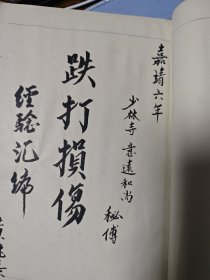 嘉靖六年
少林寺 意遠和尚 秘傳
跌打損傷
經驗汇编